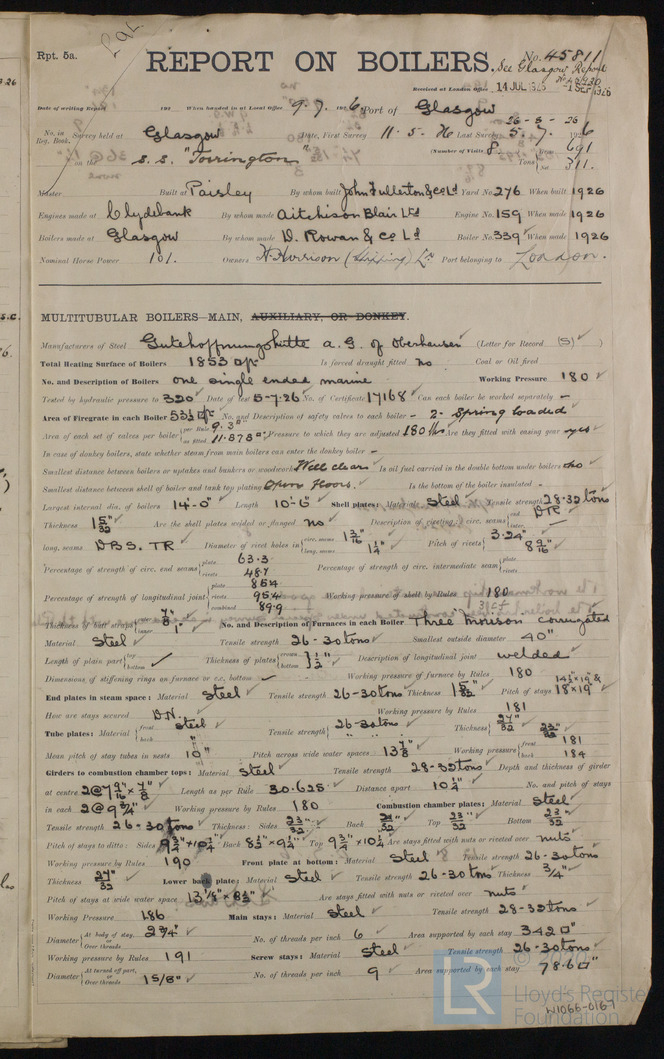 Rpt. 5a.
REPORT ON BOILERS.
No. 45811
See Glasgow Report
Received at London Office 14 JUL 1926 -1 SEP 1926
Date of writing Report 192 When handed in at Local Office 9.7. 1926 Port of Glasgow
No. in Reg. Book. Survey held at Glasgow Date, First Survey 11.5.26 Last Survey 5.7. 1926
26-5-26
on the S.S. "Torrington" (Number of Visits 8) Tons 691 311.
Master Built at Paisley By whom built John Fullerton & Co Ld Yard No. 276 When built 1926
Engines made at Clydebank By whom made Aitchison Blair Ltd Engine No. 159 When made 1926
Boilers made at Glasgow By whom made D. Rowan & Co Ld Boiler No. 339 When made 1926
Nominal Horse Power 101. Owners H. Harrison (Shipping) Ld Port belonging to London.
MULTITUBULAR BOILERS—MAIN, AUXILIARY, OR DONKEY.
Manufacturers of Steel Gutehoffnungshütte A.G. of Oberhausen (Letter for Record (S))
Total Heating Surface of Boilers 1853 sq. ft. Is forced draught fitted no Coal or Oil fired
No. and Description of Boilers one single ended marine Working Pressure 180
Tested by hydraulic pressure to 320 Date of test 5-7.26 No. of Certificate 17168 Can each boiler be worked separately –
Area of Firegrate in each Boiler 53½ sq. ft. No. and Description of safety valves to each boiler – 2 – Spring loaded
Area of each set of valves per boiler per Rule 9.3" as fitted 11.878 Pressure to which they are adjusted 180 lbs Are they fitted with easing gear yes
In case of donkey boilers, state whether steam from main boilers can enter the donkey boiler –
Smallest distance between boilers or uptakes and bunkers or woodwork Well clear Is oil fuel carried in the double bottom under boilers no
Smallest distance between shell of boiler and tank top plating Open floors. Is the bottom of the boiler insulated –
Largest internal dia. of boilers 14'-0" Length 10'-6" Shell plates: Material Steel Tensile strength 28-32 tons
Thickness 1 5/32" Are the shell plates welded or flanged no Description of riveting: circ. seams end DR inter. –
long. seams DBS. TR Diameter of rivet holes in circ. seams 1 3/16" long. seams 1¼" Pitch of rivets 3.24" 8 9/16"
Percentage of strength of circ. end seams plate 63.3 rivets 48.7 Percentage of strength of circ. intermediate seam plate rivets
Percentage of strength of longitudinal joint plate 85.4 rivets 95.4 combined 89.9 Working pressure of shell by Rules 180
Thickness of butt straps outer 7/8" inner 1" No. and Description of Furnaces in each Boiler Three Morison corrugated
Material Steel Tensile strength 26-30 tons Smallest outside diameter 40"
Length of plain part top bottom Thickness of plates crown bottom ½" Description of longitudinal joint welded
Dimensions of stiffening rings on furnace or c.c. bottom Working pressure of furnace by Rules 180
End plates in steam space: Material Steel Tensile strength 26-30 tons Thickness 1 5/32" Pitch of stays 14½ × 19 & 18 × 19"
How are stays secured D.N. Working pressure by Rules 181
Tube plates: Material front back Steel " Tensile strength 26-30 tons " " Thickness 27/32" 23/32"
Mean pitch of stay tubes in nests 10" Pitch across wide water spaces 13⅞" Working pressure front 181 back 184
Girders to combustion chamber tops: Material Steel Tensile strength 28-32 tons Depth and thickness of girder
at centre 2@7 9/16" × 7/8" Length as per Rule 30.625 Distance apart 10¼" No. and pitch of stays
in each 2@9¾" Working pressure by Rules 180 Combustion chamber plates: Material Steel
Tensile strength 26-30 tons Thickness: Sides 23/32" Back 21/32" Top 23/32" Bottom 23/32"
Pitch of stays to ditto: Sides 9¾" × 10¼" Back 8½" × 9¼" Top 9¾" × 10¼" Are stays fitted with nuts or riveted over nuts
Working pressure by Rules 190 Front plate at bottom: Material Steel Tensile strength 26-30 tons
Thickness 27/32" Lower back plate: Material Steel Tensile strength 26-30 tons Thickness ¾"
Pitch of stays at wide water space 13⅞" × 8½" Are stays fitted with nuts or riveted over nuts
Working Pressure 186 Main stays: Material Steel Tensile strength 28-32 tons
Diameter At body of stay, or Over threads 2¾" No. of threads per inch 6 Area supported by each stay 342 □"
Working pressure by Rules 191 Screw stays: Material Steel Tensile strength 26-30 tons
Diameter At turned off part, or Over threads 1 5/8" No. of threads per inch 9 Area supported by each stay 78.6 □"
© 2020
LR
Lloyd's Register
Foundation
W1066-0169